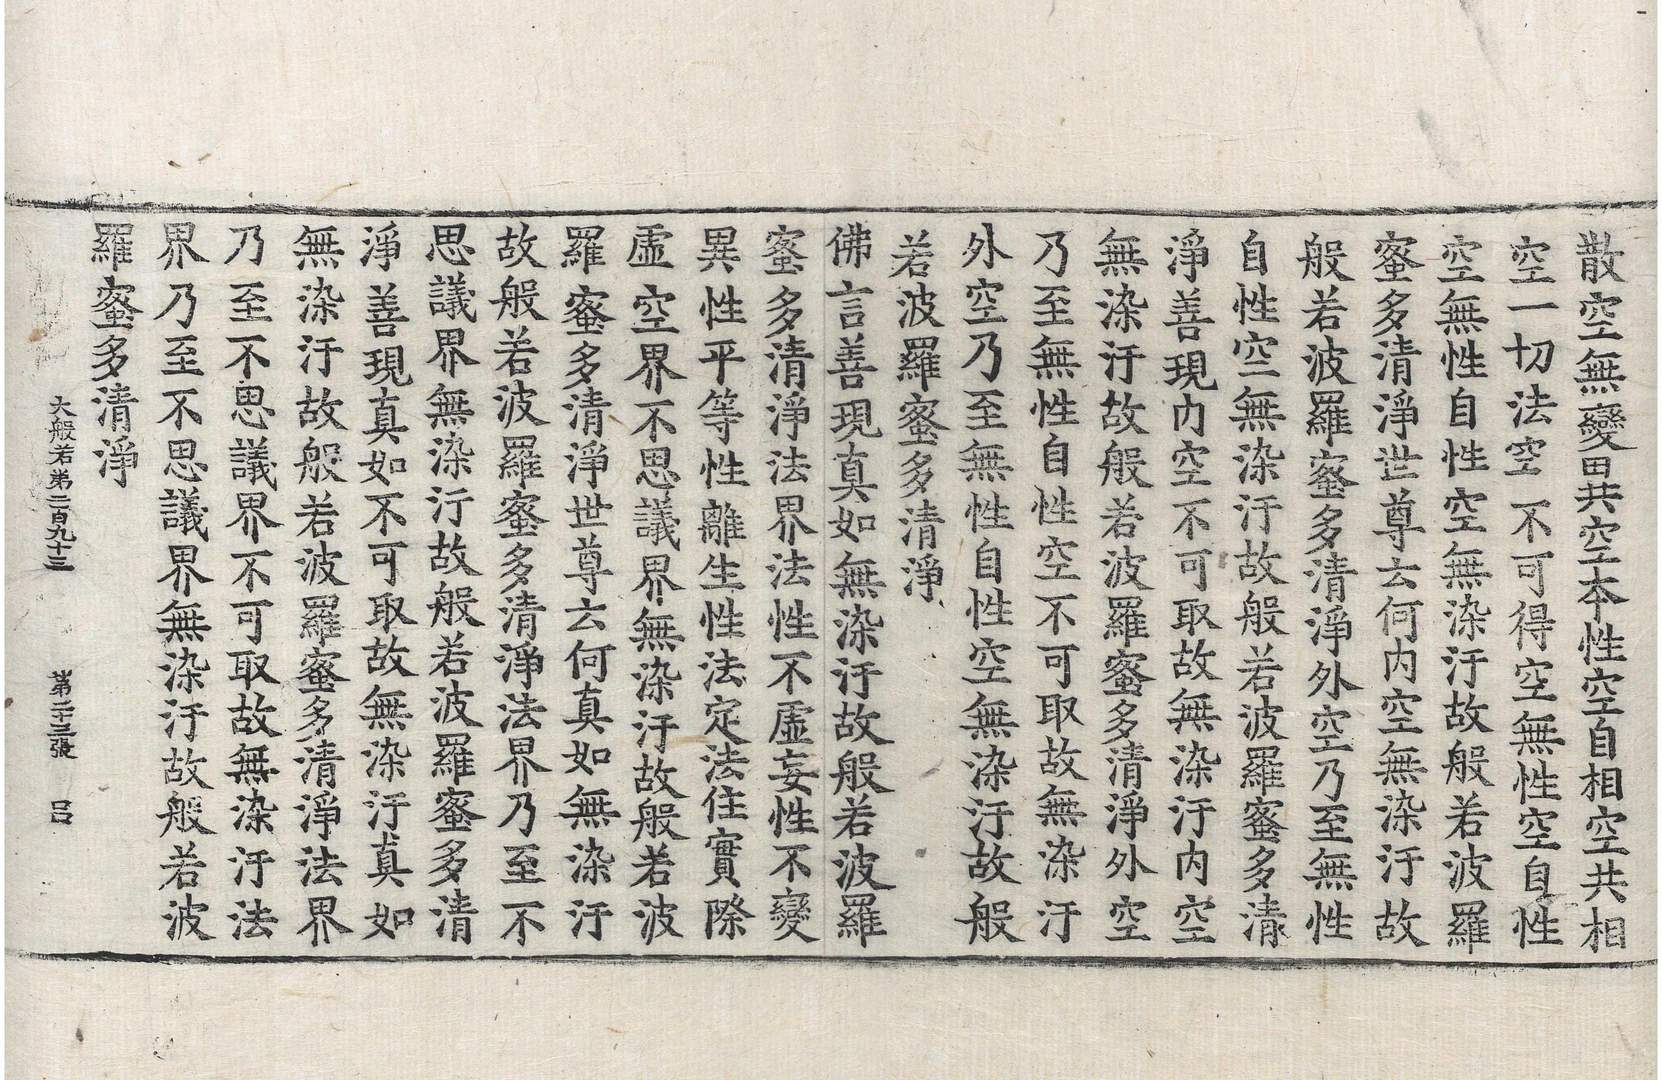 散空無變異空本性空自相空共相
空一切法空不可得空無性空自性
空無性自性空無染汙故般若波羅
蜜多清淨世尊云何内空無染汙故
般若波羅蜜多清淨外空乃至無性
自性空無染汙故般若波羅蜜多清
淨善現内空不可取故無染汙内空
無染汙故般若波羅蜜多清淨外空
乃至無性自性空不可取故無染汙
外空乃至無性自性空無染汙故般
若波羅蜜多清淨
佛言善現真如無染汙故般若波羅
蜜多清淨法界法性不虛妄性不變
異性平等性離生性法定法住實際
虛空界不思議界無染汙故般若波
羅蜜多清淨世尊云何真如無染汙
故般若波羅蜜多清淨法界乃至不
思議界無染汙故般若波羅蜜多清
淨善現真如不可取故無染汙真如
無染汙故般若波羅蜜多清淨法界
乃至不思議界不可取故無染汙法
界乃至不思議界無染汙故般若波
羅蜜多清淨
大般若第二百九十三 第二十三張 呂